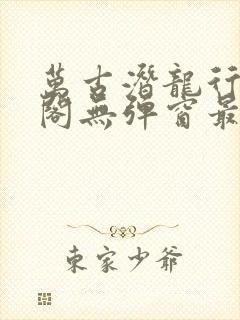 萬古潛龍行
閣無彈窗最
東家少爺